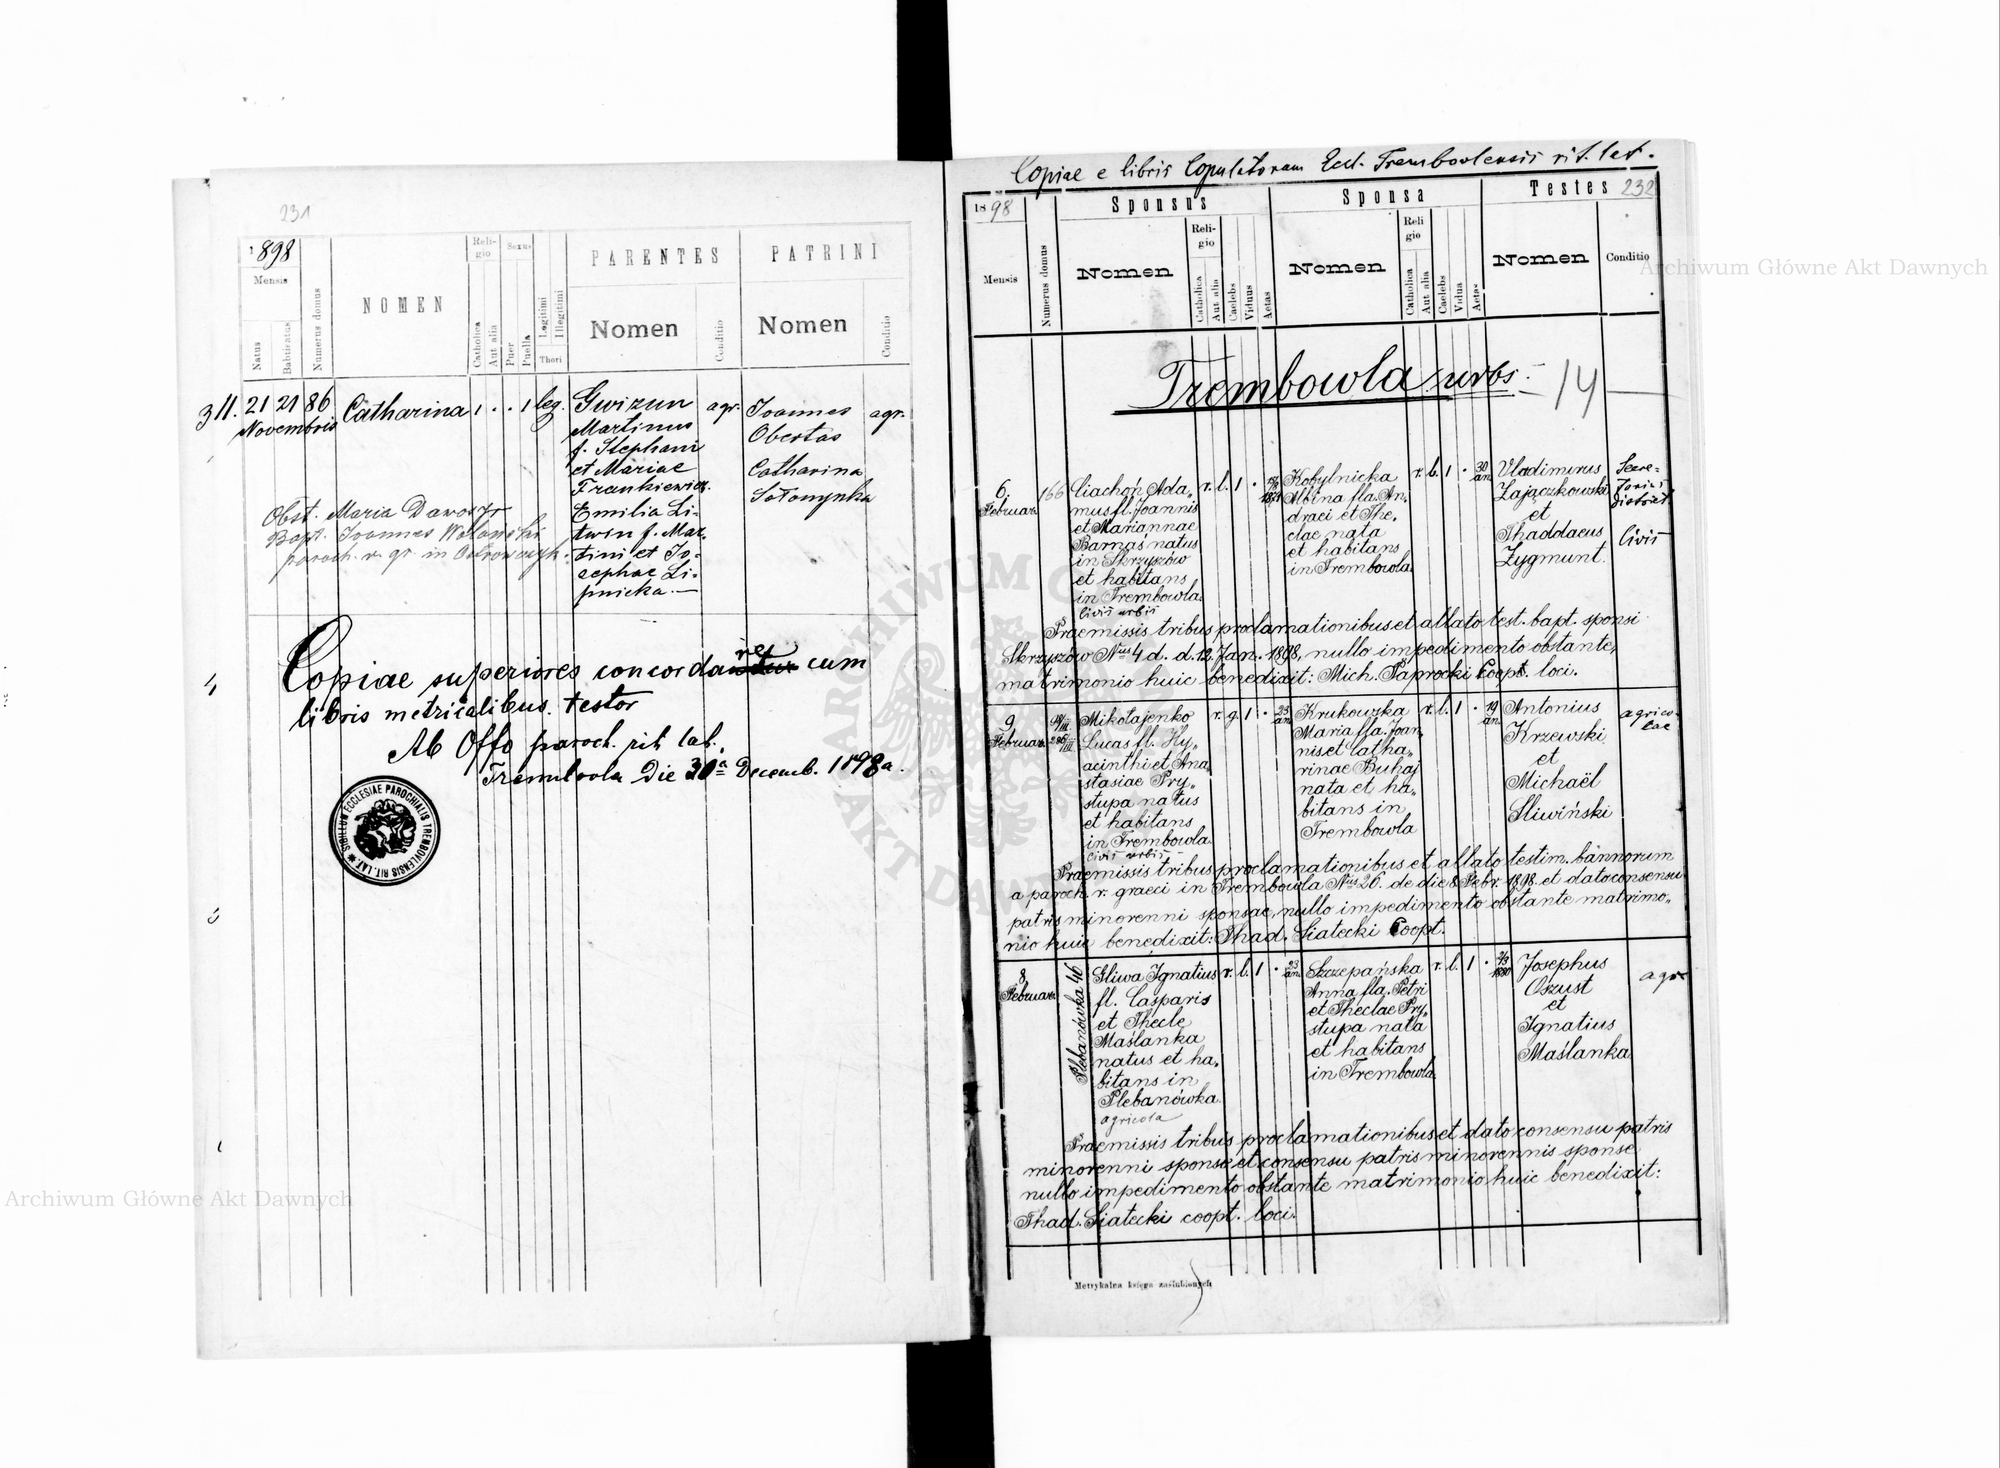 231
1898
Mensis
Natus
Babtisatus
Numerus domus
NOMEN
Reli-
gio
Catholica
Aut alia
Sexus
Puer
Puella
Legitimi
Illegitimi
Thori
PARENTES
Nomen
Conditio
PATRINI
Nomen
Conditio
311. 21 21 86 Catharina 1 . . 1 leg.
Novembris
Gwizun
Martinus
f. Stephani
et Mariae
Frankiewicz.
Emilia Li-
twin f. Mar-
tini et Jo-
sephae Li-
pnicka.
agr.
Joannes
Obertas
Catharina
Sołomynka
agr.
Obst. Maria
Bapt. Joannes Wołański
paroch. r. gr. in
Copiae superiores concordantes cum
libris metricalibus. testor
Ab Offo paroch. rit. lat.
Trembovla Die 30a Decemb. 1898 a.
SIGILLUM ECCLESIAE PAROCHIALIS TREMBOVLENSIS RIT. LAT.
Archiwum Główne Akt Dawnych
Copiae e libris Copulatorum Eccl. Trembovlensis rit. lat.
1898
Mensis
Numerus domus
Sponsus
Nomen
Reli-
gio
Catholica
Aut alia
Caelebs
Viduus
Aetas
Sponsa
Nomen
Reli
gio
Catholica
Aut alia
Caelebs
Vidua
Aetas
Testes 232
Nomen
Conditio
Archiwum Główne Akt Dawnych
Trembowla urbs. 14
6.
Februar.
166
Ciachoń Ada-
mus fl. Joannis
et Mariannae
Barnaś natus
in Skrzyszów
et habitans
in Trembowla.
civis urbis
r. l. 1 .
1871
Kobylnicka
Albina fla. An-
draei et The-
clae nata
et habitans
in Trembowla.
r. l. 1 . 30
an.
Vladimirus
Zajączkowski
et
Thaddaeus
Zygmunt.
Secre-
tarius
district.
Civis
Praemissis tribus proclamationibus et allato test. bapt. sponsi
Skrzyszów Nus 4 d. d. 12. Jan. 1898, nullo impedimento obstante,
matrimonio huic benedixit: Mich. Paprocki Coopt. loci.
9
Februar.
Mikołajenko
Lucas fl. Hy-
acinthi et Ana-
stasiae Pry-
stupa natus
et habitans
in Trembowla.
civis urbis
r. g. 1 . 23
an.
Krukowska
Maria fla. Joan-
nis et Catha-
rinae Buhaj
nata et ha-
bitans in
Trembowla
r. l. 1 . 19
an.
Antonius
Krzewski
et
Michaël
Śliwiński
agrico-
lae
Praemissis tribus proclamationibus et allato testim. bannorum
a paroch. r. graeci in Trembowla Nus 26. de die 8 Febr. 1898 et dato consensu
patris minorenni sponsae, nullo impedimento obstante matrimo-
nio huic benedixit: Thad. Siatecki Coopt.
8
Februar.
Plebanówka 46
Śliwa Ignatius
fl. Casparis
et Thecle
Maślanka
natus et ha-
bitans in
Plebanówka.
agricola
r. l. 1 . 23
an.
Szczepańska
Anna fla. Petri
et Theclae Pry-
stupa nata
et habitans
in Trembowla.
r. l. 1 .
1880
Josephus
Oszust
et
Ignatius
Maślanka
agr.
Praemissis tribus proclamationibus et dato consensu patris
minorenni sponsae et consensu patris minorennis sponse
nullo impedimento obstante matrimonio huic benedixit:
Thad. Siatecki coopt. loci.
Metrykalna księga zaślubionych
ARCHIWUM GŁÓWNE AKT DAWNYCH